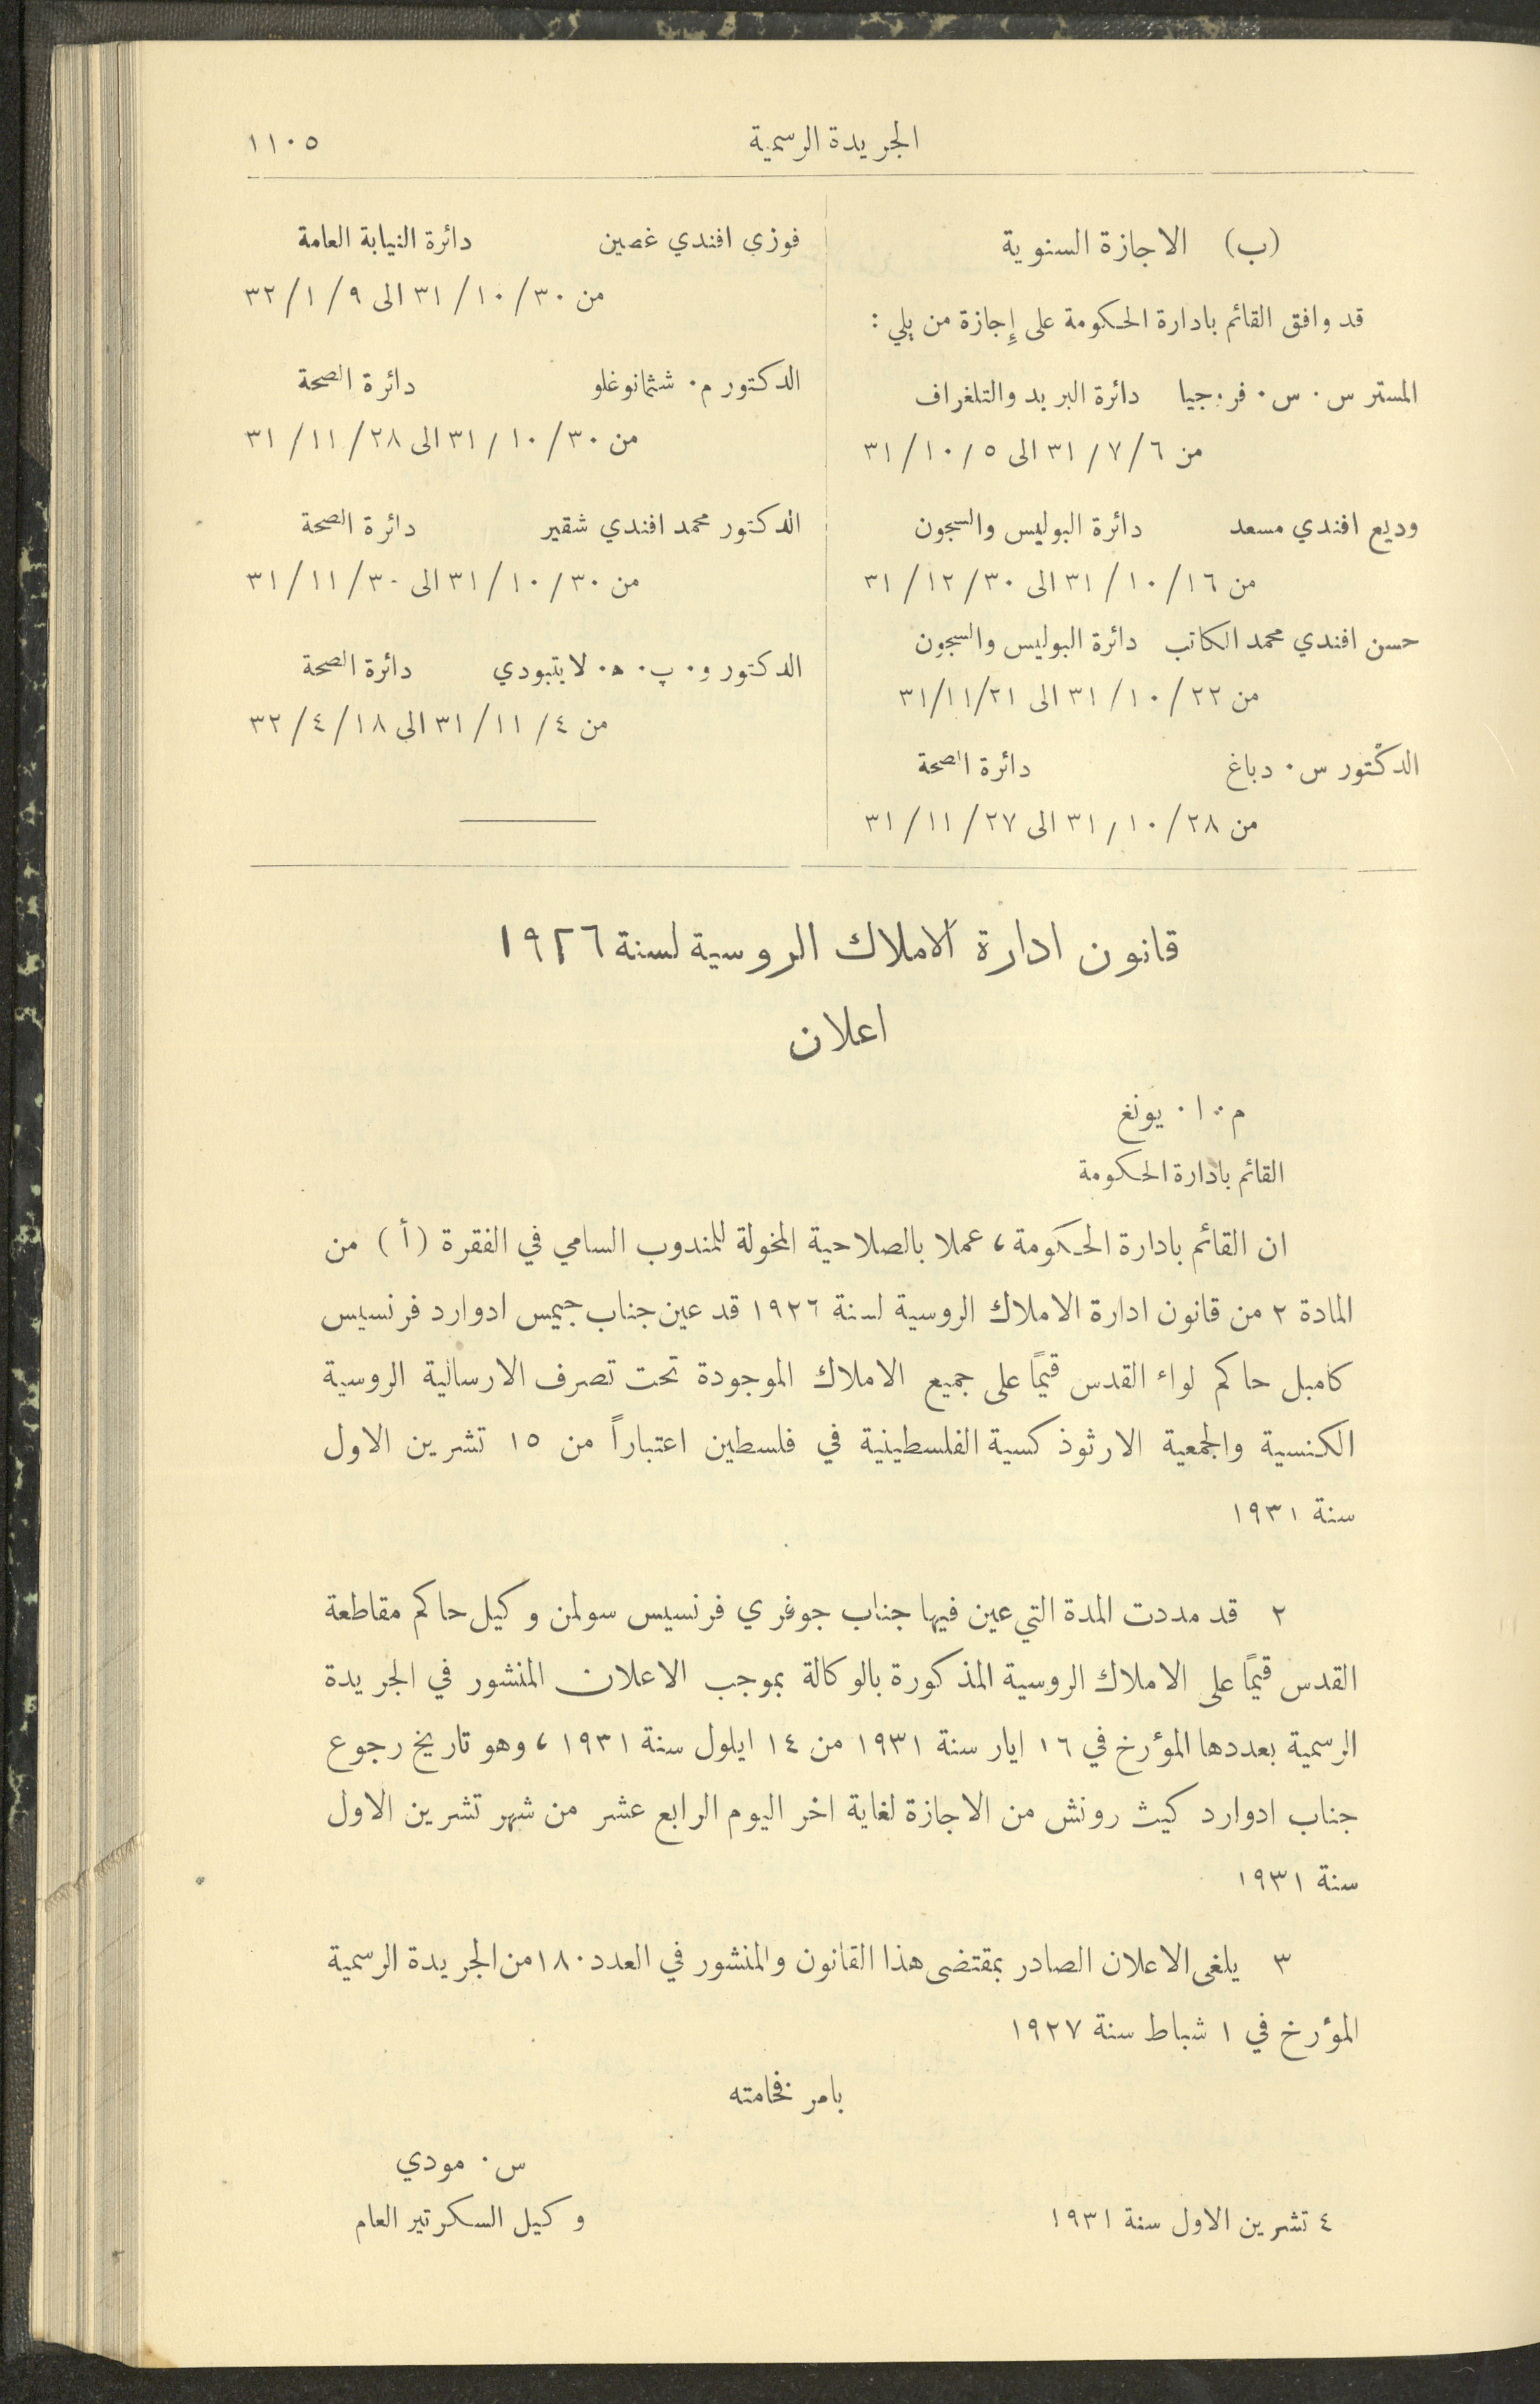 الجريدة الرسمية ١١٠٥
(ب) الاجازة السنوية
قد وافق القائم بادارة الحكومة على إجازة من يلي :
المستر س٠ س٠ فرنجيا دائرة البريد والتلغراف
من ٦/٧/٣١ الى ٥/١٠/٣١
وديع افندي مسعد دائرة البوليس والسجون
من ١٦/١٠/٣١ الى ٣٠/١٢/٣١
حسن افندي محمد الكاتب دائرة البوليس والسجون
من ٢٢/١٠/٣١ الى ٢١/١١/٣١
الدكتور س٠ دباغ دائرة الصحة
من ٢٨/١٠/٣١ الى ٢٧/١١/٣١
فوزي افندي غصين دائرة النيابة العامة
من ٣٠/١٠/٣١ الى ٩/١/٣٢
الدكتور م٠ شثمانوغلو دائرة الصحة
من ٣٠/١٠/٣١ الى ٢٨/١١/٣١
الدكتور محمد افندي شقير دائرة الصحة
من ٣٠/١٠/٣١ الى ٣٠/١١/٣١
الدكتور و٠ پ٠ ه٠ لايتبودي دائرة الصحة
من ٤/١١/٣١ الى ١٨/٤/٣٢
قانون ادارة الاملاك الروسية لسنة ١٩٢٦
اعلان
م٠ ا٠ يونغ
القائم بادارة الحكومة
ان القائم بادارة الحكومة، عملا بالصلاحية المخولة للمندوب السامي في الفقرة (أ) من
المادة ٢ من قانون ادارة الاملاك الروسية لسنة ١٩٢٦ قد عين جناب جيمس ادوارد فرنسيس
كامبل حاكم لواء القدس قيمًا على جميع الاملاك الموجودة تحت تصرف الارسالية الروسية
الكنسية والجمعية الارثوذكسية الفلسطينية في فلسطين اعتباراً من ١٥ تشرين الاول
سنة ١٩٣١
٢ قد مددت المدة التي عين فيها جناب جوفري فرنسيس سولمن وكيل حاكم مقاطعة
القدس قيمًا على الاملاك الروسية المذكورة بالوكالة بموجب الاعلان المنشور في الجريدة
الرسمية بعددها المؤرخ في ١٦ ايار سنة ١٩٣١ من ١٤ ايلول سنة ١٩٣١، وهو تاريخ رجوع
جناب ادوارد كيث رونش من الاجازة لغاية اخر اليوم الرابع عشر من شهر تشرين الاول
سنة ١٩٣١
٣ يلغى الاعلان الصادر بمقتضى هذا القانون والمنشور في العدد ١٨٠ من الجريدة الرسمية
المؤرخ في ١ شباط سنة ١٩٢٧
بامر فخامته
س٠ مودي
٤ تشرين الاول سنة ١٩٣١ وكيل السكرتير العام